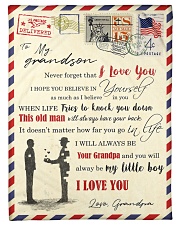 DELIVERED
4¢
To My
grandson
Never forget that I Love You
I HOPE YOU BELIEVE IN Yourself
as much as I believe in you
WHEN LIFE Tries to knock you down
This old man will always have your back.
It doesn't matter how far you go in life
I WILL ALWAYS BE
Your Grandpa and you will
alway be my little boy
I LOVE YOU
Love, Grandpa